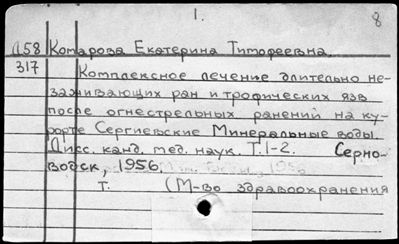 1.
8
1158 Комарова Екатерина Тимофеевна.
317 Комплексное лечение длительно не-
заживающих ран и трофических язв
после огнестрельных ранений на ку-
рорте Сергиевские Минеральные воды.
Дисс. канд. мед. наук. Т.1-2. Серно-
водск, 1956.
т. (М-во здравоохранения